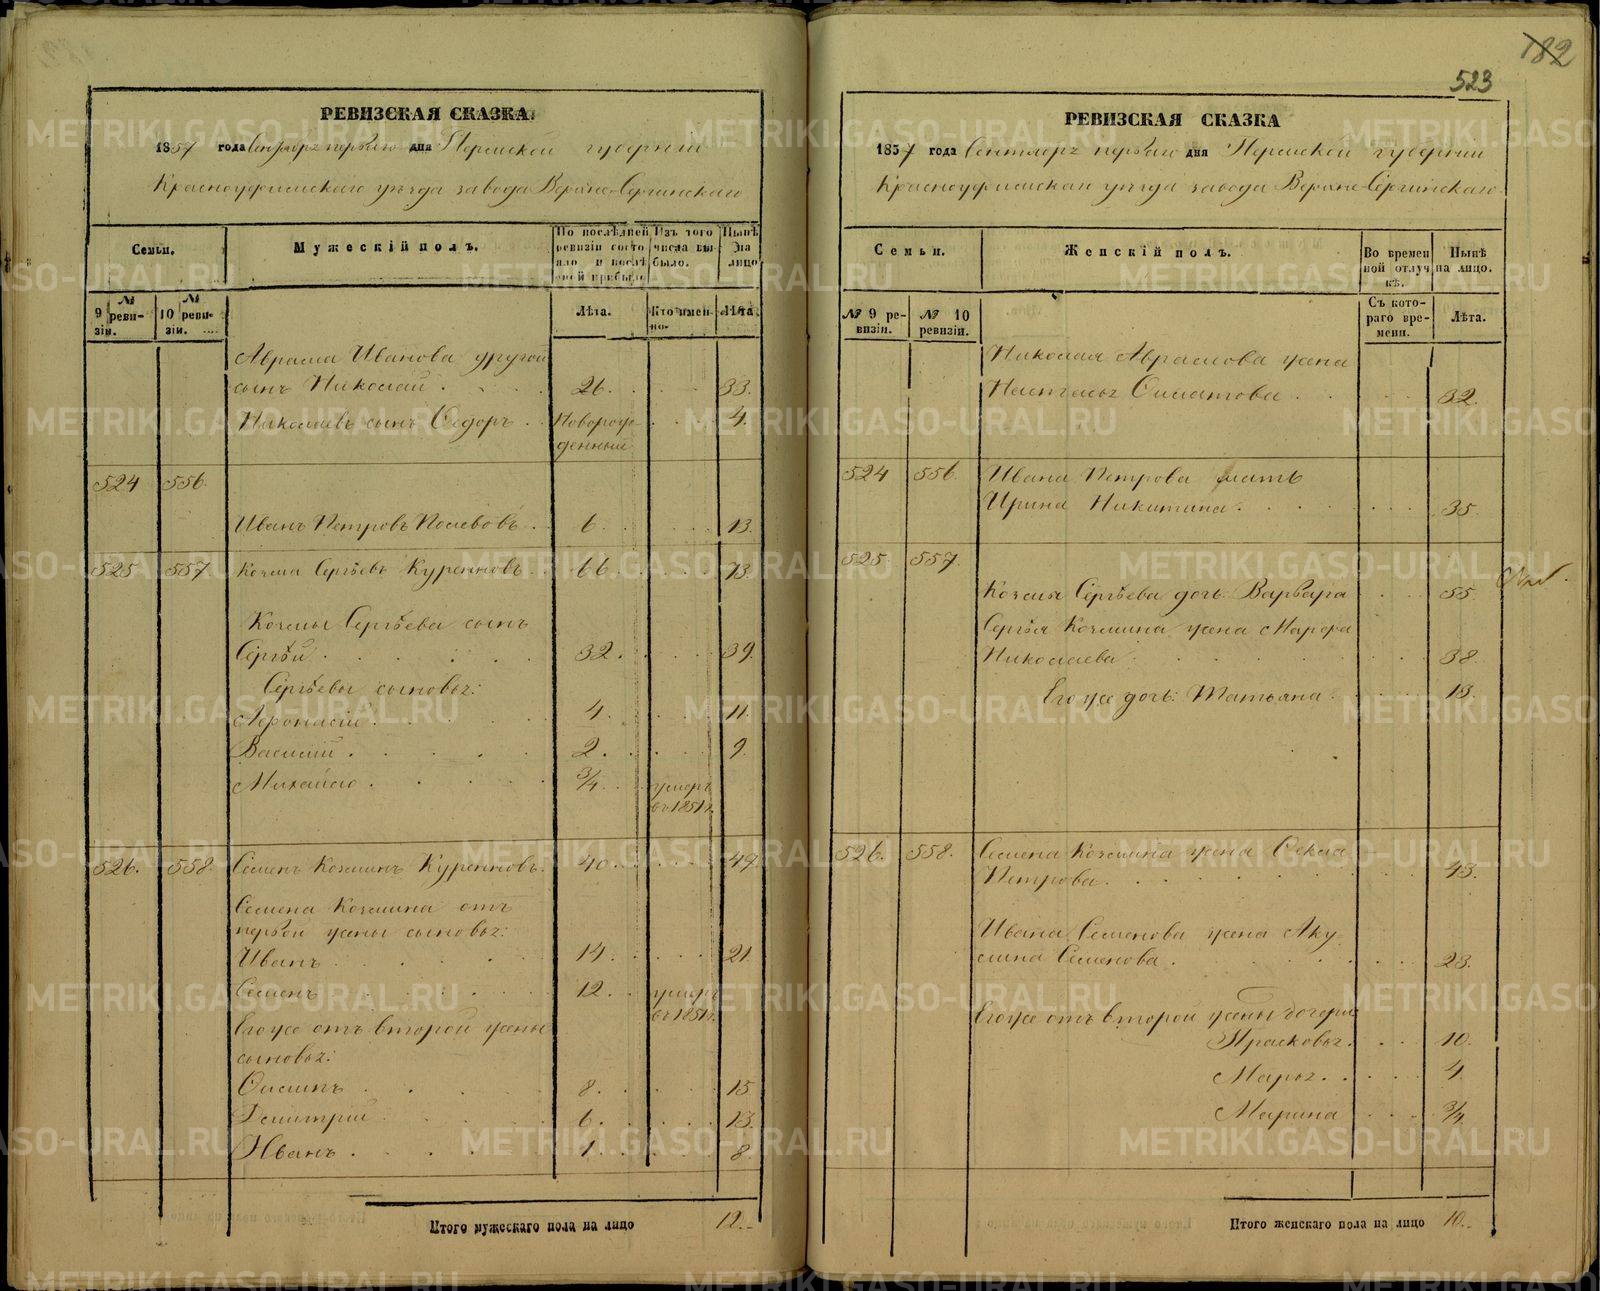 182
523
РЕВИЗСКАЯ СКАЗКА.
1857 года Сентября первого дня Пермской губерніи
Красноуфимскаго уѣзда завода Верхне-Сергинскаго
Семьи.
Мужескій полъ.
По послѣдней ревизіи состояло и послѣ оной прибыло
Изъ того числа выбыло.
Нынѣ на лицо
№ 9 ревизіи.
№ 10 ревизіи.
Лѣта.
Кто именно.
Лѣта.
Абрама Иванова другой
сынъ Николай 26. 33.
Николаевъ сынъ Ѳедоръ Новорожденный 4.
524 556.
Иванъ Петровъ Полевовъ 6. 13.
525 557. Козма Сергѣевъ Куренновъ 66. 73.
Козмы Сергѣева сынъ
Сергѣй 32. 39.
Сергѣевы сыновья:
Афонасій 4. 11.
Василій 2. 9.
Михайло 3/4. умеръ въ 1851 г.
526. 558. Семенъ Козминъ Куренновъ. 40. 47.
Семена Козмина отъ
первой жены сыновья:
Иванъ 14. 21.
Семенъ 12. умеръ въ 1851 г.
Его же отъ второй жены
сыновья:
Осипъ 8. 15.
Дмитрий 6. 13.
Иванъ 1. 8.
Итого мужескаго пола на лицо 12.
РЕВИЗСКАЯ СКАЗКА
1857 года Сентября первого дня Пермской губерніи
Красноуфимскаго уѣзда завода Верхне-Сергинскаго.
Семьи.
Женскій полъ.
Во временной отлучкѣ.
Нынѣ на лицо.
№ 9 ревизіи.
№ 10 ревизіи.
Съ котораго времени.
Лѣта.
Николая Абрамова жена
Настасья 32.
524 556. Ивана Петрова мать
Ирина Никитина 35.
525. 557.
Козмы Сергѣева дочь Варвара 55.
Сергѣя Козмина жена Марфа
Николаева 38.
Его же дочь: Татьяна 13.
526. 558. Семена Козмина жена Ѳекла
Петрова 43.
Ивана Семенова жена Аку
лина Семенова 23.
Его же отъ второй жены дочери
Прасковья 10.
Марья 4.
Марина 3/4.
Итого женскаго пола на лицо 10.
METRIKI.GASO-URAL.RU